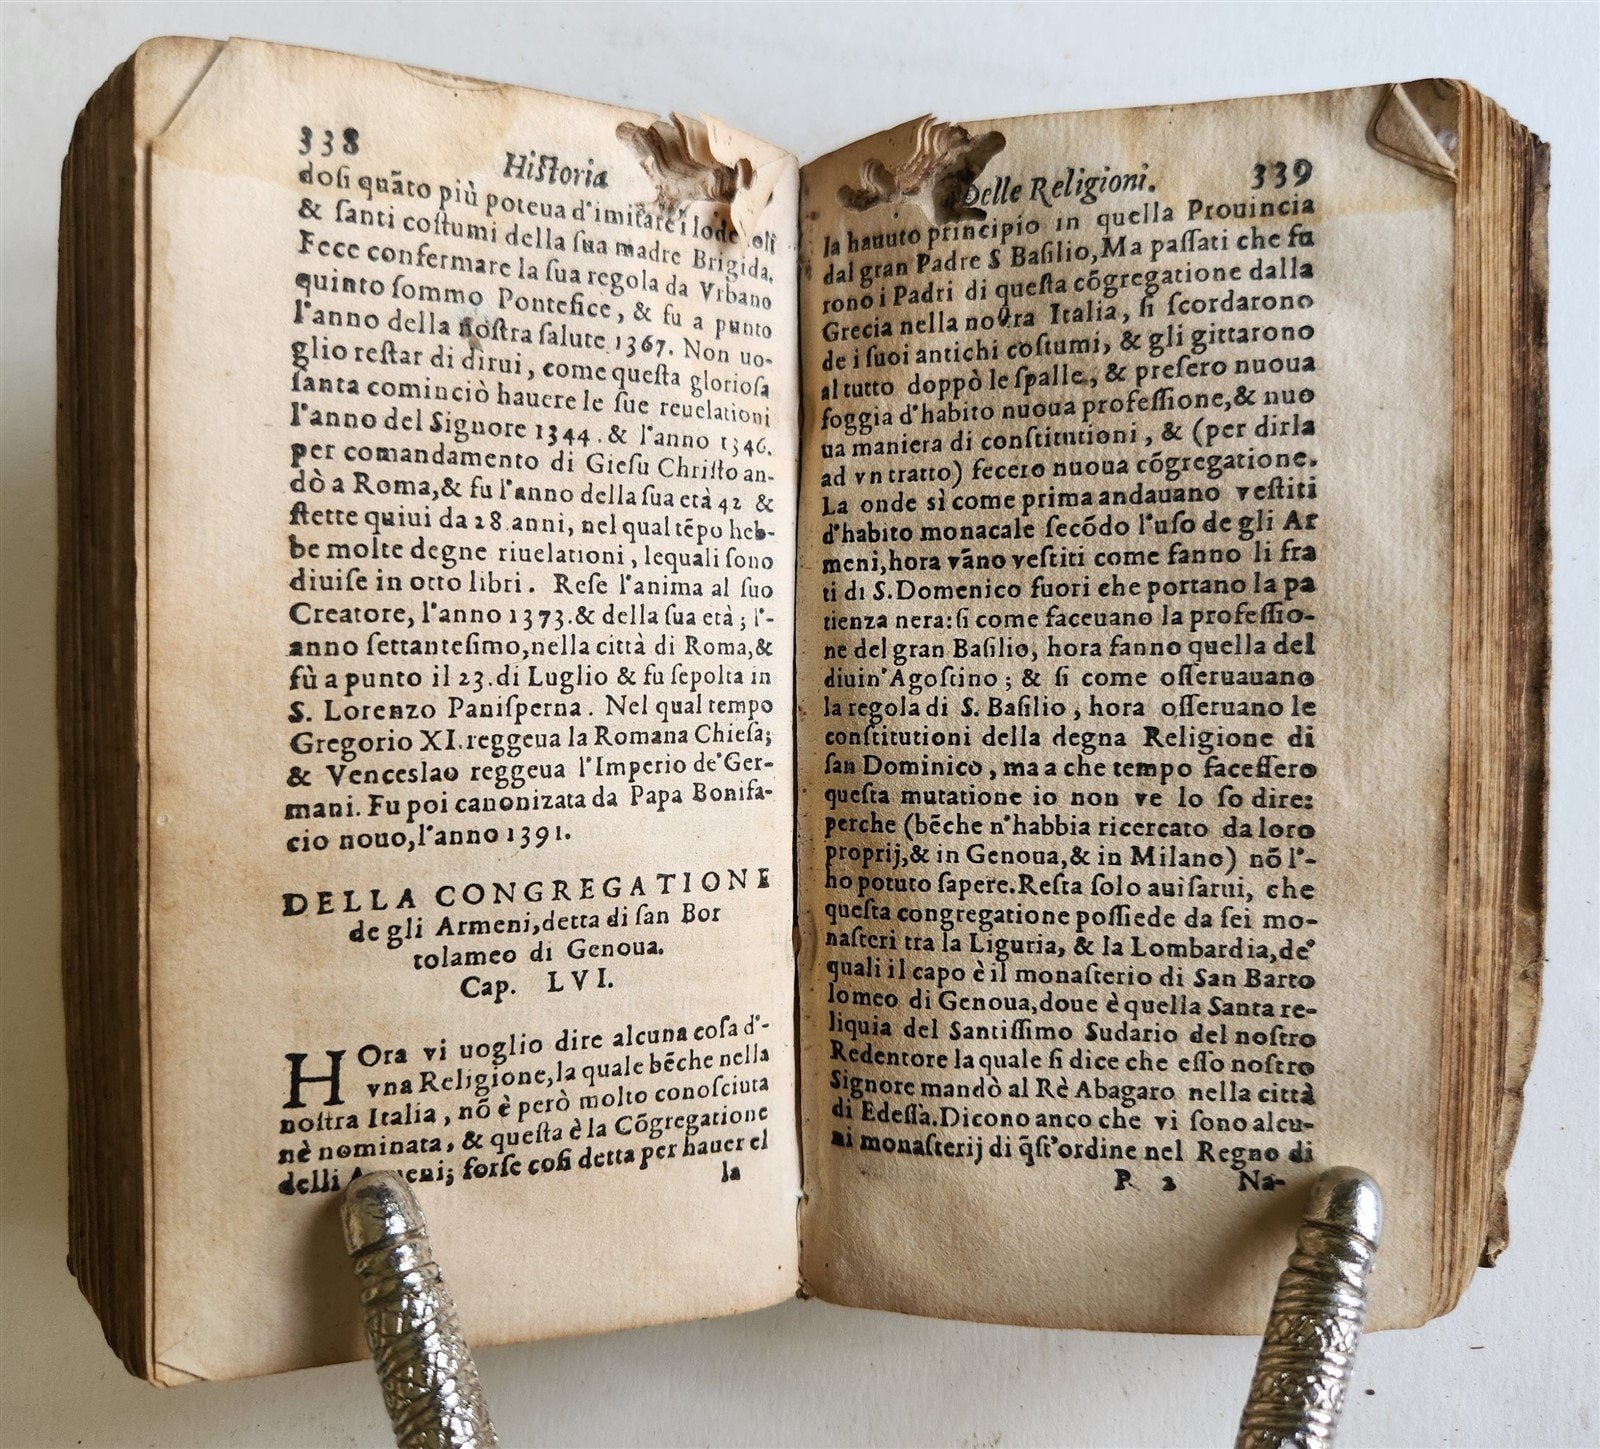 338
Hiſtoria
doſi quãto più poteua d'imitare i lode oli
& ſanti coſtumi della ſua madre Brigida.
Fece confermare la ſua regola da Vrbano
quinto ſommo Pontefice, & fu a punto
l'anno della noſtra ſalute 1367. Non uo-
glio reſtar di dirui, come queſta glorioſa
ſanta cominciò hauere le ſue reuelationi
l'anno del Signore 1344. & l'anno 1346.
per comandamento di Gieſu Chriſto an-
dò a Roma,& fu l'anno della ſua età 42 &
ſtette quiui da 28 anni, nel qual tẽpo heb-
be molte degne riuelationi, lequali ſono
diuiſe in otto libri. Reſe l'anima al ſuo
Creatore, l'anno 1373.& della ſua età; l'-
anno ſettanteſimo,nella città di Roma,&
fù a punto il 23.di Luglio & fu ſepolta in
S. Lorenzo Paniſperna. Nel qual tempo
Gregorio XI.reggeua la Romana Chieſa;
& Venceslao reggeua l'Imperio de'Ger-
mani. Fu poi canonizata da Papa Bonifa-
cio nouo,l'anno 1391.
DELLA CONGREGATIONE
de gli Armeni,detta di ſan Bor
tolameo di Genoua.
Cap. LVI.
HOra vi uoglio dire alcuna coſa d'-
vna Religione,la quale bẽche nella
noſtra Italia, nõ è però molto conoſciuta
nè nominata, & queſta è la Cõgregatione
delli A eni; forſe coſi detta per hauer el
la
Delle Religioni.
339
la hauuto principio in quella Prouincia
dal gran Padre S Baſilio,Ma paſſati che fu
rono i Padri di queſta cõgregatione dalla
Grecia nella noſtra Italia, ſi ſcordarono
de i ſuoi antichi coſtumi, & gli gittarono
al tutto doppò le ſpalle, & preſero nuoua
foggia d'habito nuoua profeſſione,& nuo
ua maniera di conſtitutioni, & (per dirla
ad vn tratto) fecero nuoua cõgregatione.
La onde sì come prima andauano veſtiti
d'habito monacale ſecõdo l'uſo de gli Ar
meni,hora vãno veſtiti come fanno li fra
ti di S.Domenico fuori che portano la pa
tienza nera:ſi come faceuano la profeſſio-
ne del gran Baſilio, hora fanno quella del
diuin'Agoſtino; & ſi come oſſeruauano
la regola di S. Baſilio, hora oſſeruano le
conſtitutioni della degna Religione di
ſan Dominico, ma a che tempo faceſſero
queſta mutatione io non ve lo ſo dire:
perche (bẽche n'habbia ricercato da loro
proprij,& in Genoua,& in Milano) nõ l'-
ho potuto ſapere.Reſta ſolo auiſarui, che
queſta congregatione poſſiede da ſei mo-
naſteri tra la Liguria, & la Lombardia,de'
quali il capo è il monaſterio di San Barto
lomeo di Genoua,doue è quella Santa re-
liquia del Santiſſimo Sudario del noſtro
Redentore la quale ſi dice che eſſo noſtro
Signore mandò al Rè Abagaro nella città
di Edeſſa.Dicono anco che vi ſono alcu-
ni monaſterij di q̃ſt'ordine nel Regno di
P 2 Na-